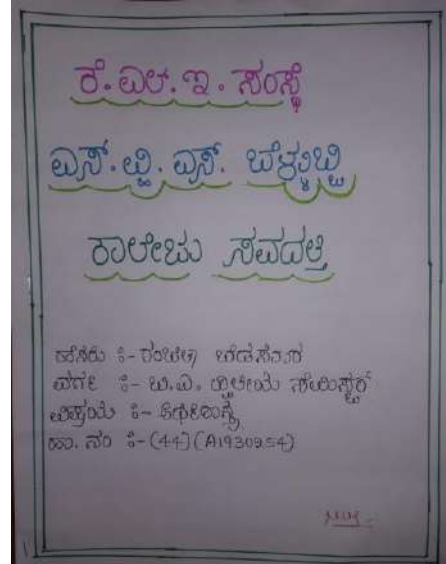 ಕೆ.ಎಲ್.ಇ. ಸಂಸ್ಥೆ
ಎಸ್.ವ್ಹಿ.ಎಸ್. ಬೆಳ್ಳುಬ್ಬಿ
ಕಾಲೇಜು ಸವದತ್ತಿ
ಹೆಸರು :-
ವರ್ಗ :- ಬಿ.ಎ. ದ್ವಿತೀಯ ಸೆಮಿಸ್ಟರ್
ವಿಷಯ :- ಅರ್ಥಶಾಸ್ತ್ರ
ಹಾ. ನಂ :- (44) (A1930954)